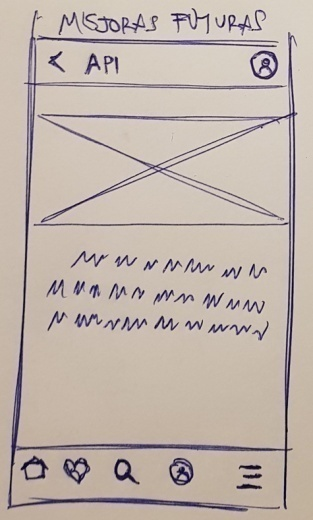 MEJORAS FUTURAS
< API